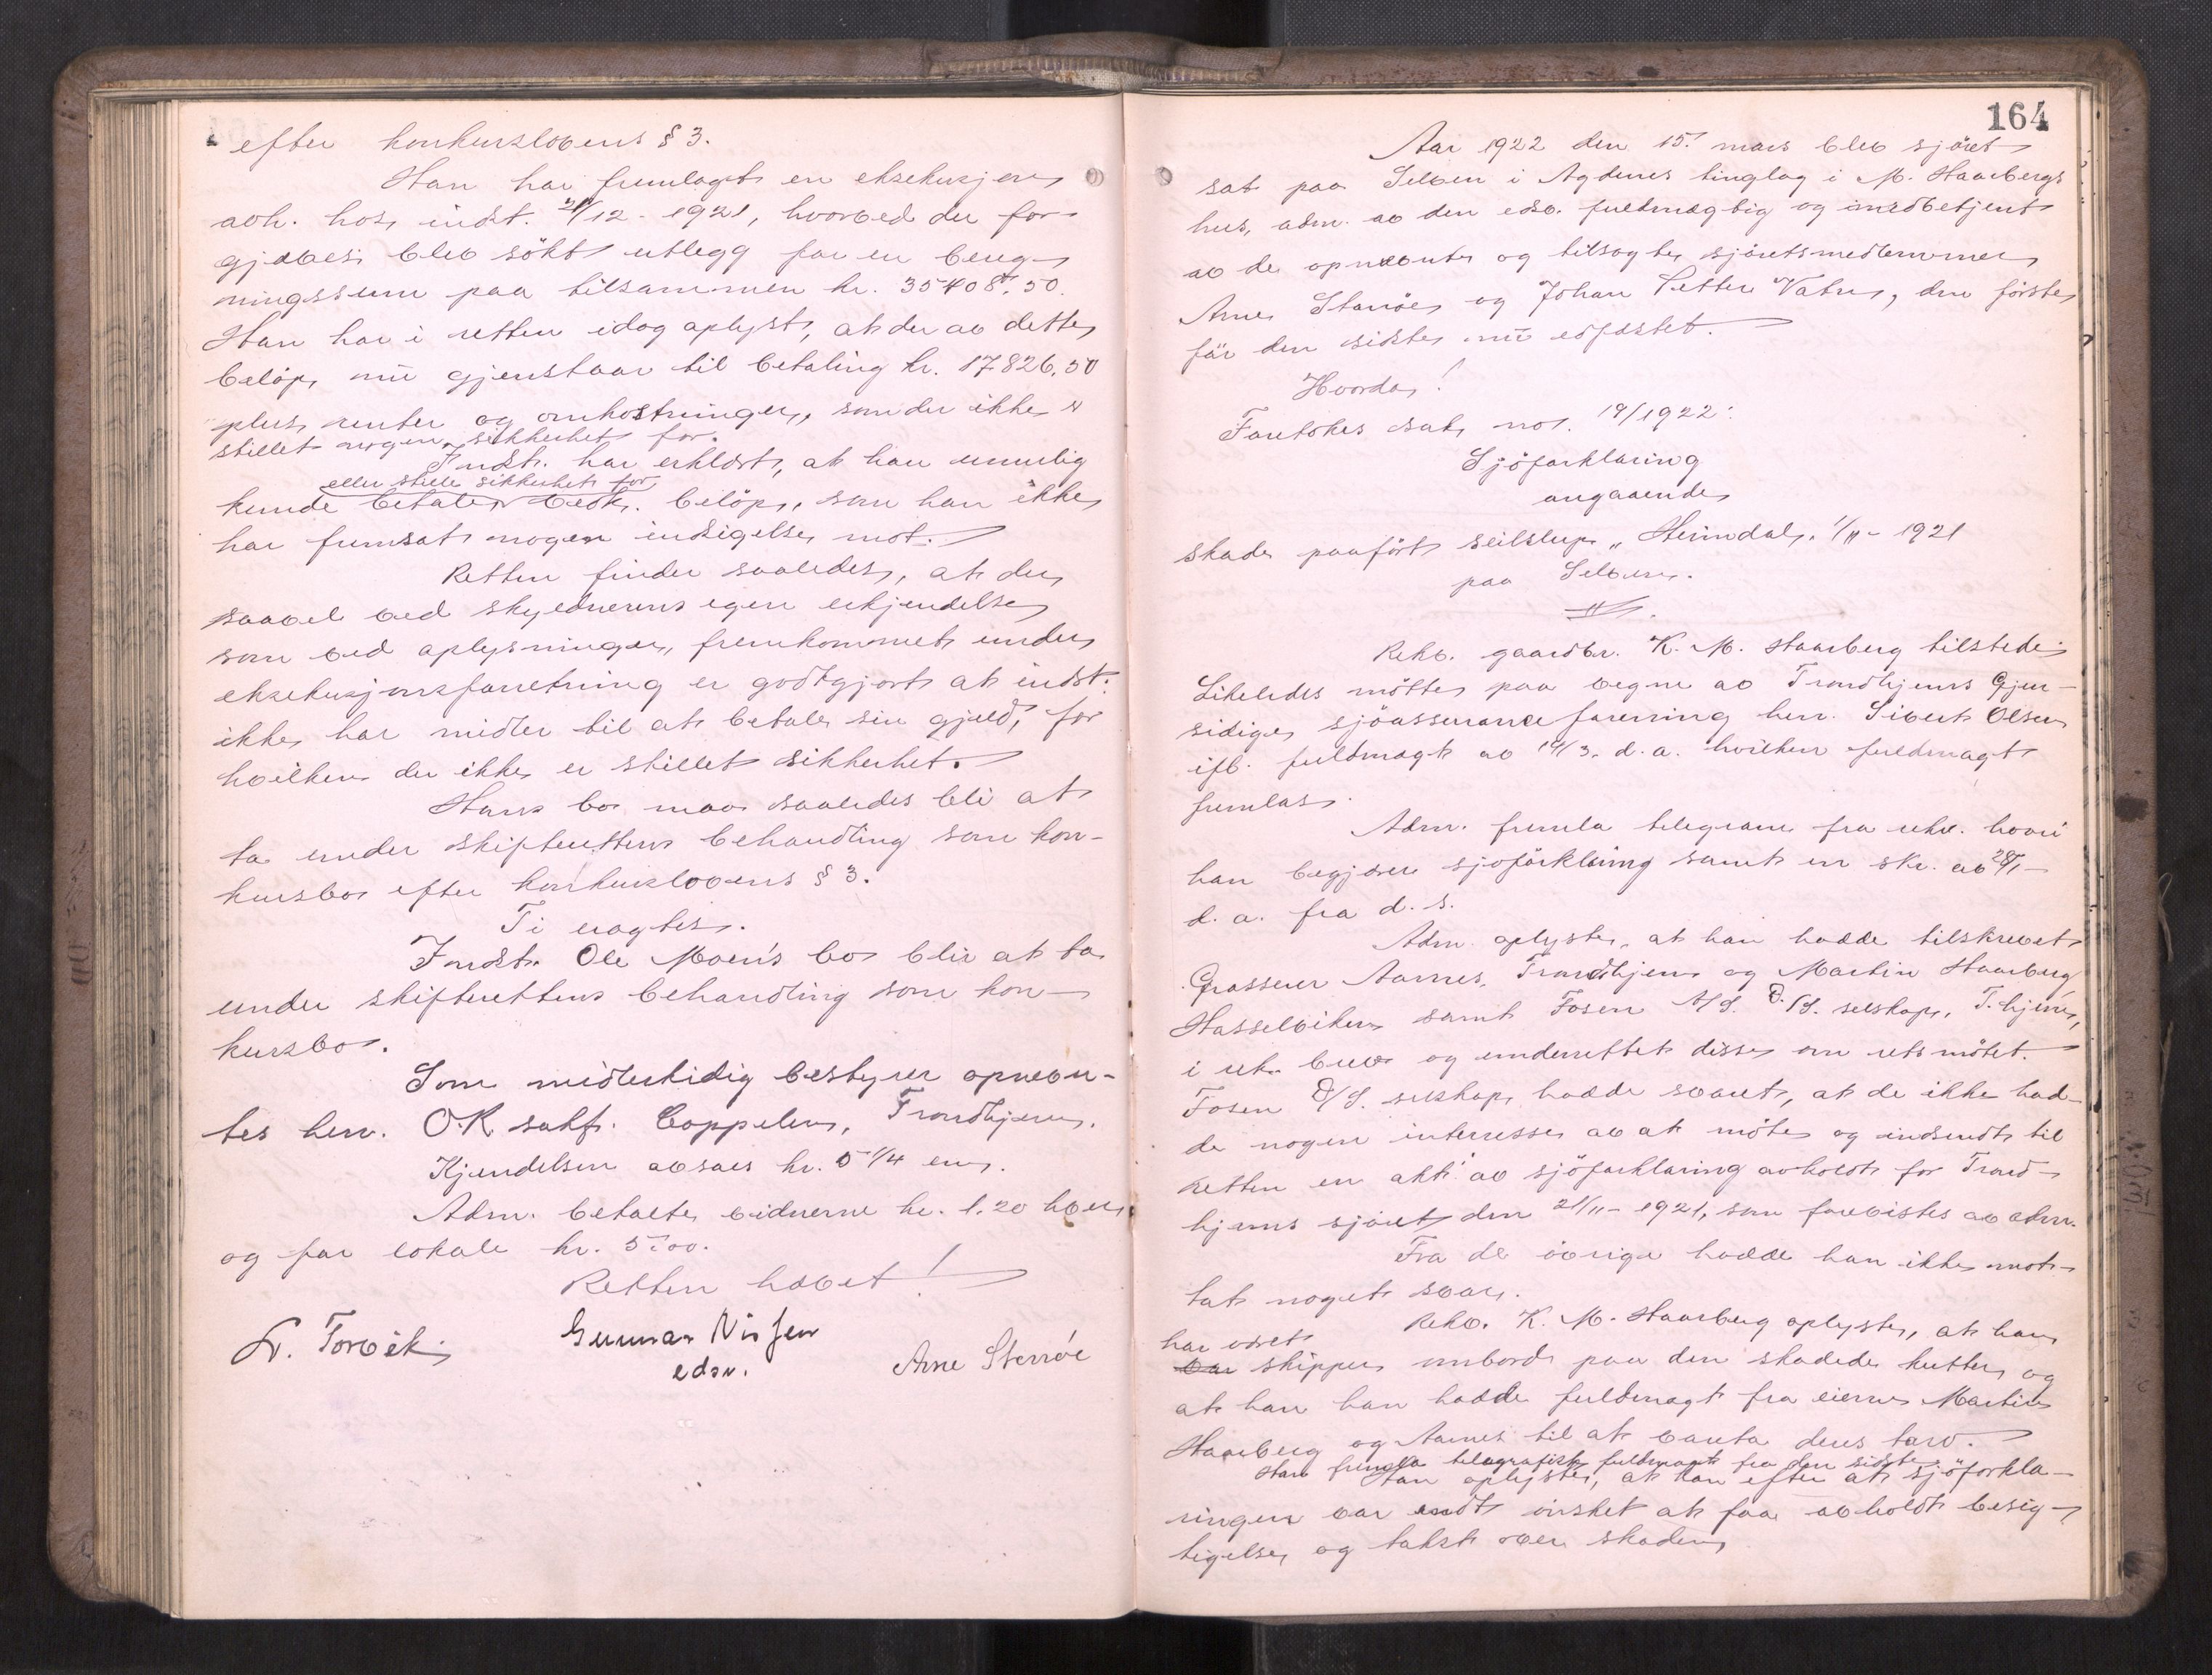 efter konkurslovens § 3.
Han har fremlagt en eksekusjon
avh. hos indst. 21/12 - 1921, hvorved der for-
gjæves blev søkt utlegg for en
ningssum paa tilsammen kr. 35408.50.
Han har i retten idag oplyst, at der av dette
beløp nu gjenstaar til betaling kr. 17826.50
plus renter og omkostninger, som der ikke er
stillet nogen sikkerhet for.
Indst. har erklært, at han umulig
eller stille sikkerhet for
kunde betale vedk. beløp, som han ikke
har fremsat nogen indsigelse mot.
Retten finder saaledes, at der
saavel ved skyldnerens egen erkjendelse
som ved oplysninger, fremkommet under
eksekusjonsforretning er godtgjort at indst.
ikke har midler til at betale sin gjeld, for
hvilken der ikke er stillet sikkerhet.
Hans bo maa saaledes bli at
ta under skifterettens behandling som kon-
kursbo efter konkurslovens § 3.
Ti eragtes.
Indst. Ole Moen's bo blir at ta
under skifterettens behandling som kon-
kursbo.
Som midlertidig bestyrer opnevn-
tes herr. O.R. sakf. Coppelen, Trondhjem.
Kjendelsen avsaes kl. 5 1/4 em.
Adm. betalte vidnerne kr. 1.20 hver
og for lokale kr. 5.00.
Retten hævet!
Torvik
Gunnar Nissen
edsv.
Arne Sterrøe
164
Aar 1922 den 15. mars blev sjøret
sat paa Selven i Agdenes tinglag i M. Haarbergs
hus, adm. av den edsv. fuldmægtig og medbetjent
av de opnævnte og tilsagte sjøretsmedlemmer
Arne Starrøe og Johan Petter Vatn, den første
før den sidste nu edfæstet.
Hvorda!
Foretokes sak no. 19/1922:
Sjøforklaring
angaaende
skade paaført seilslup "Heimdal" 1/11 - 1921
paa Selven.
Rekv. gaardbr. K. M. Haarberg tilstede.
Likeledes møtte paa vegne av Trondhjems Gjen-
sidige sjøassuranceforening herr. Sivert Olsen
ifl. fuldmagt av 14/3. d.a. hvilken fuldmagt
fremlas.
Adm. fremla telegram fra rekv. hvori
han begjærer sjøforklaring samt en skr. av 28/1 -
d. a. fra d. s.
Adm. oplyste, at han hadde tilskrevet
Grosserer Aarnes, Trondhjem og Martin Haarberg
Hasselviken samt Fosen A/S. D./S. selskap, T.hjem,
i rek. brev og underrettet disse om retsmøtet.
Fosen D/S. selskap hadde svaret, at de ikke had-
de nogen interesse av at møte og indsendt til
retten en akt av sjøforklaring avholdt for Trond-
hjems sjøret den 21/11 - 1921, som forevistes av adm.
Fra de øvrige hadde han ikke mot-
tat noget svar.
Rekv. K. M. Haarberg oplyste, at han
har været
var skipper ombord paa den skadede kutter og
at han han hadde fuldmagt fra eierne Martin
Haarberg og Aarnes til at vareta deres tarv.
Han fremla telegrafisk fuldmagt fra den sidste.
Han oplyste, at han efter at sjøforkla-
ringen var endt ønsket at faa avholdt besig-
tigelse og takst over skaden